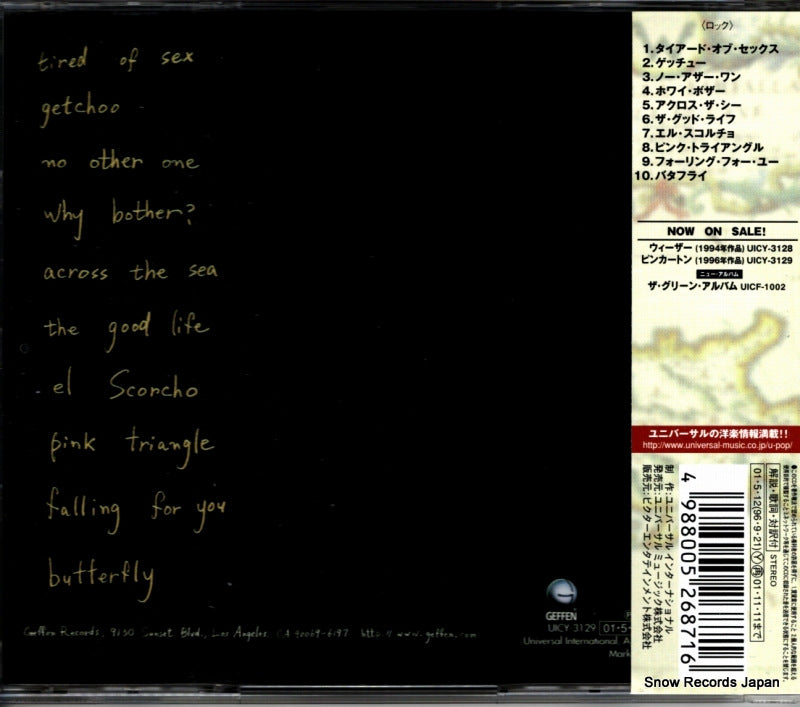 tired of sex
getchoo
no other one
why bother?
across the sea
the good life
el Scorcho
pink triangle
falling for you
butterfly
Geffen Records, 9130 Sunset Blvd., Los Angeles, CA 90069-6197 http://www.geffen.com
GEFFEN
UICY-3129 01-5-
Universal International, A
Mark
〈ロック〉
1.タイアード・オブ・セックス
2.ゲッチュー
3.ノー・アザー・ワン
4.ホワイ・ボザー
5.アクロス・ザ・シー
6.ザ・グッド・ライフ
7.エル・スコルチョ
8.ピンク・トライアングル
9.フォーリング・フォー・ユー
10.バタフライ
NOW ON SALE!
ウィーザー (1994年作品) UICY-3128
ピンカートン (1996年作品) UICY-3129
ニュー・アルバム
ザ・グリーン・アルバム UICF-1002
ユニバーサルの洋楽情報満載!!
http://www.universal-music.co.jp/u-pop/
解説・歌詞・対訳付 STEREO
01・5・12(96・9・21)Ⓨ再01・11・11まで
制 作:ユニバーサル インターナショナル
発売元:ユニバーサル ミュージック株式会社
販売元:ビクターエンタテインメント株式会社
4 988005 268716
Snow Records Japan